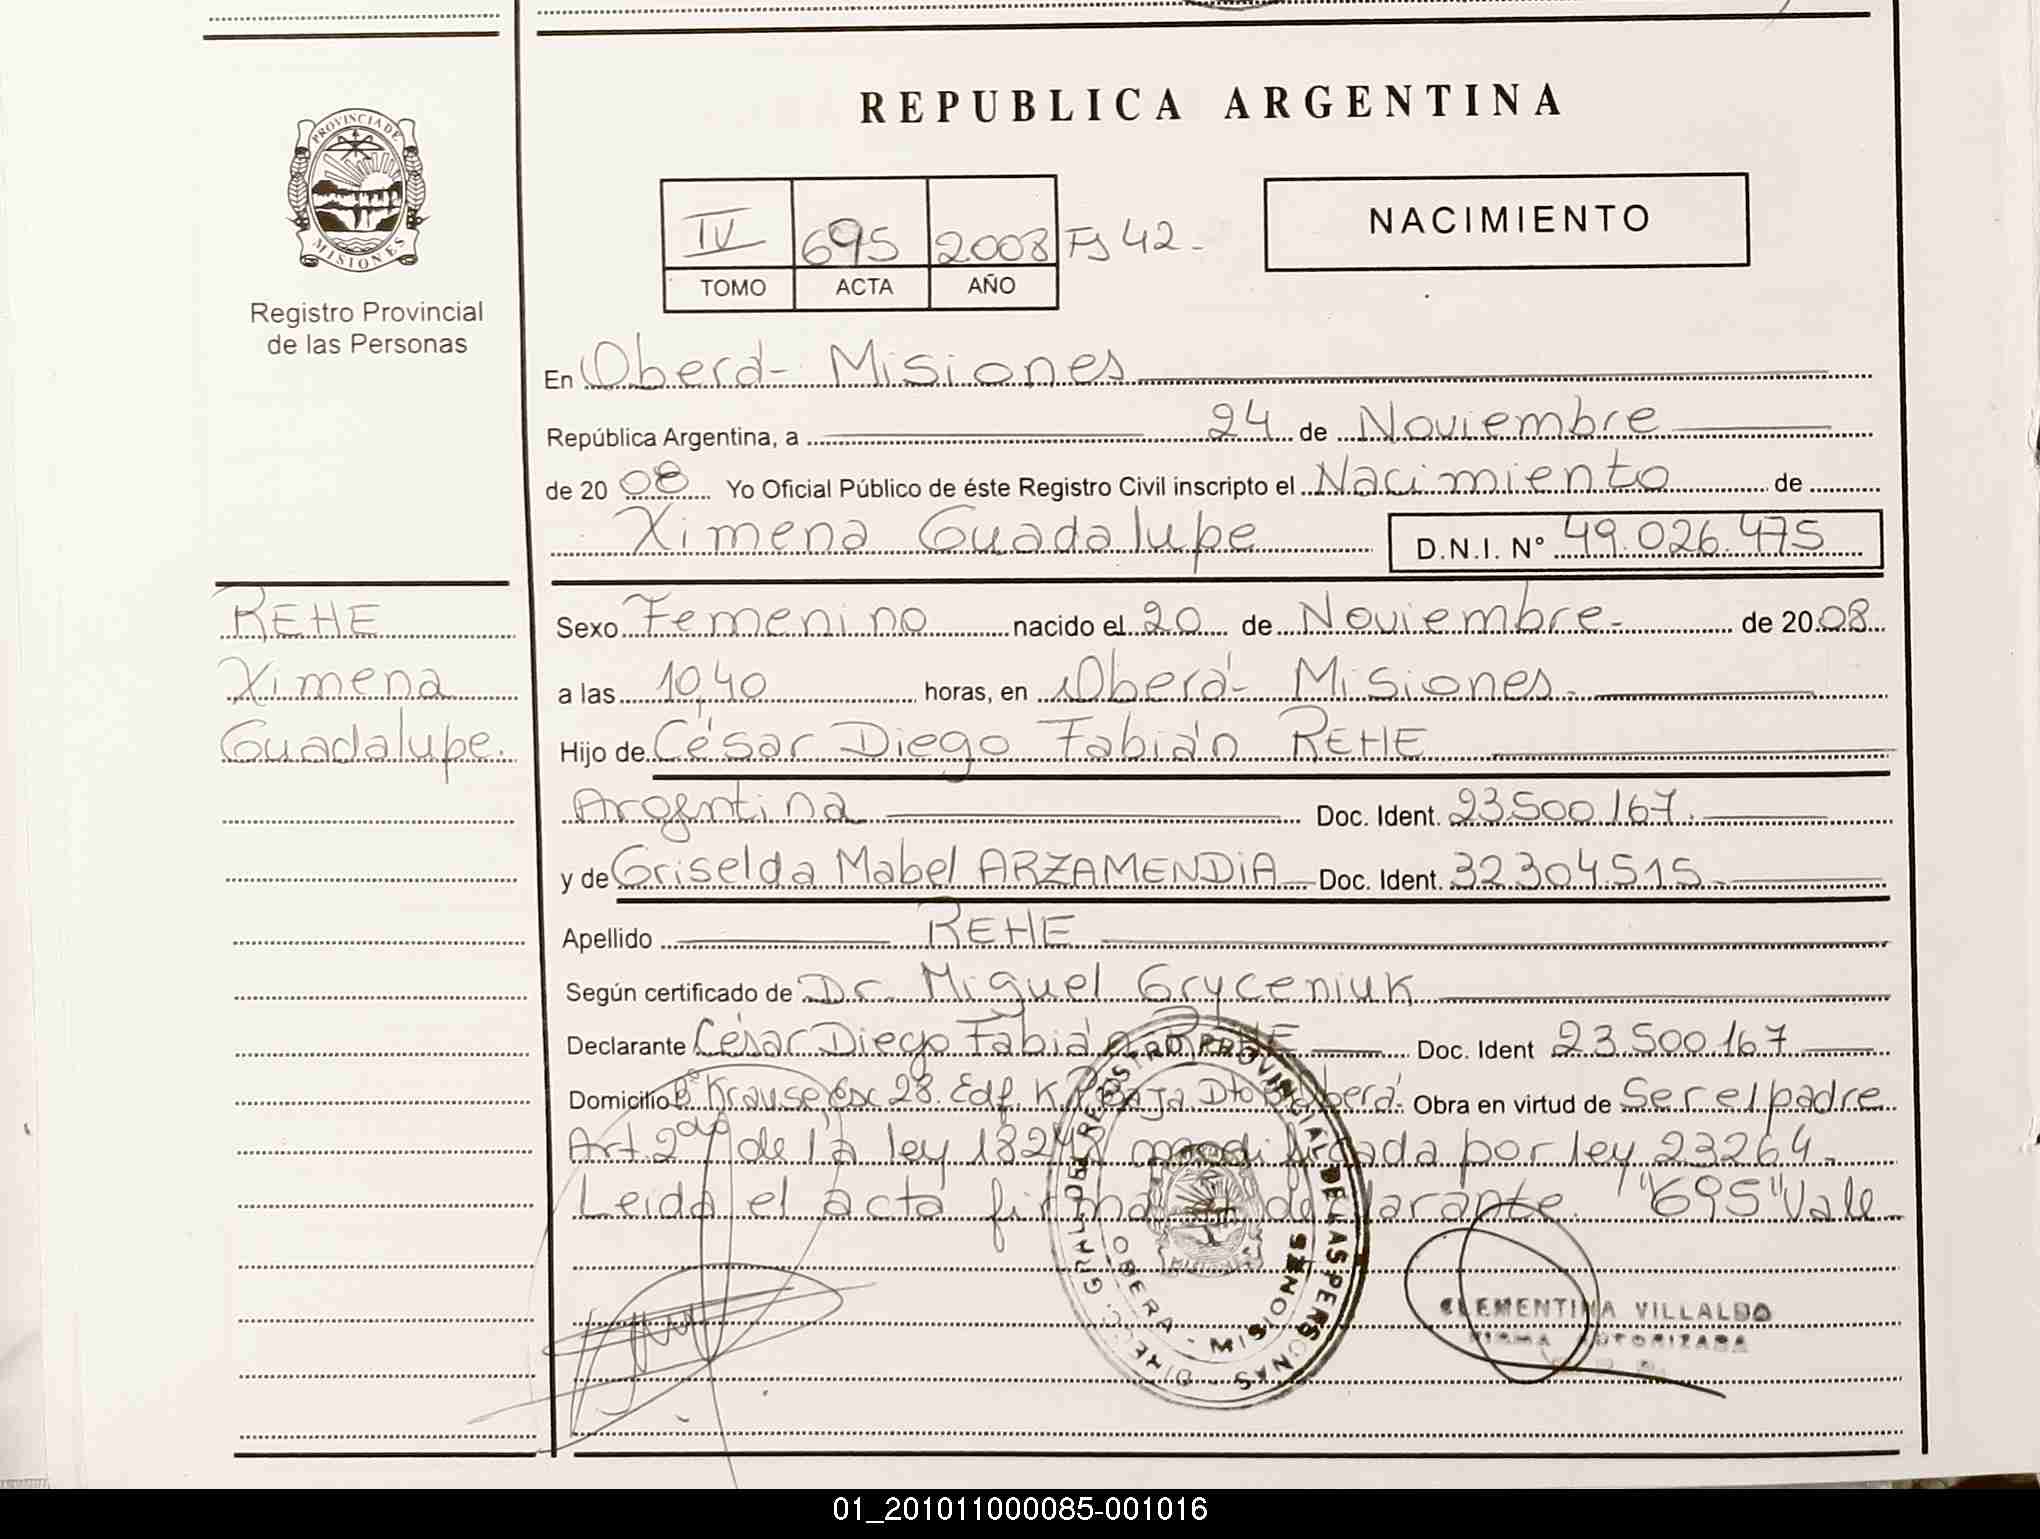 PROVINCIA DE
MISIONES
Registro Provincial
de las Personas
REHE
Ximena
Guadalupe.
REPUBLICA ARGENTINA
IV 695 2008 Fs 42.-
TOMO ACTA AÑO
NACIMIENTO
En Oberá- Misiones
República Argentina, a 24 de Noviembre
de 20 08 Yo Oficial Público de éste Registro Civil inscripto el Nacimiento de
Ximena Guadalupe D.N.I. N° 49.026.475
Sexo Femenino nacido el 20 de Noviembre.- de 20 08
a las 10,40 horas, en Oberá- Misiones.
Hijo de César Diego Fabián REHE
Argentina Doc. Ident. 23.500.167.
y de Griselda Mabel ARZAMENDIA Doc. Ident. 32.304.515.
Apellido REHE
Según certificado de Dr. Miguel Gryceniuk
Declarante César Diego Fabián REHE Doc. Ident 23.500.167
Domicilio B° Krause esc 28. Edf. K. P. Baja Dto Oberá. Obra en virtud de Ser el padre
Art. 2do de la ley 18248 modificada por ley 23264.
Leida el acta firma el declarante. "695" Vale
DIRECC. GRAL. DEL REGISTRO PROVINCIAL DE LAS PERSONAS
OBERA - MISIONES
CLEMENTINA VILLALBO
FIRMA AUTORIZADA
01_201011000085-001016